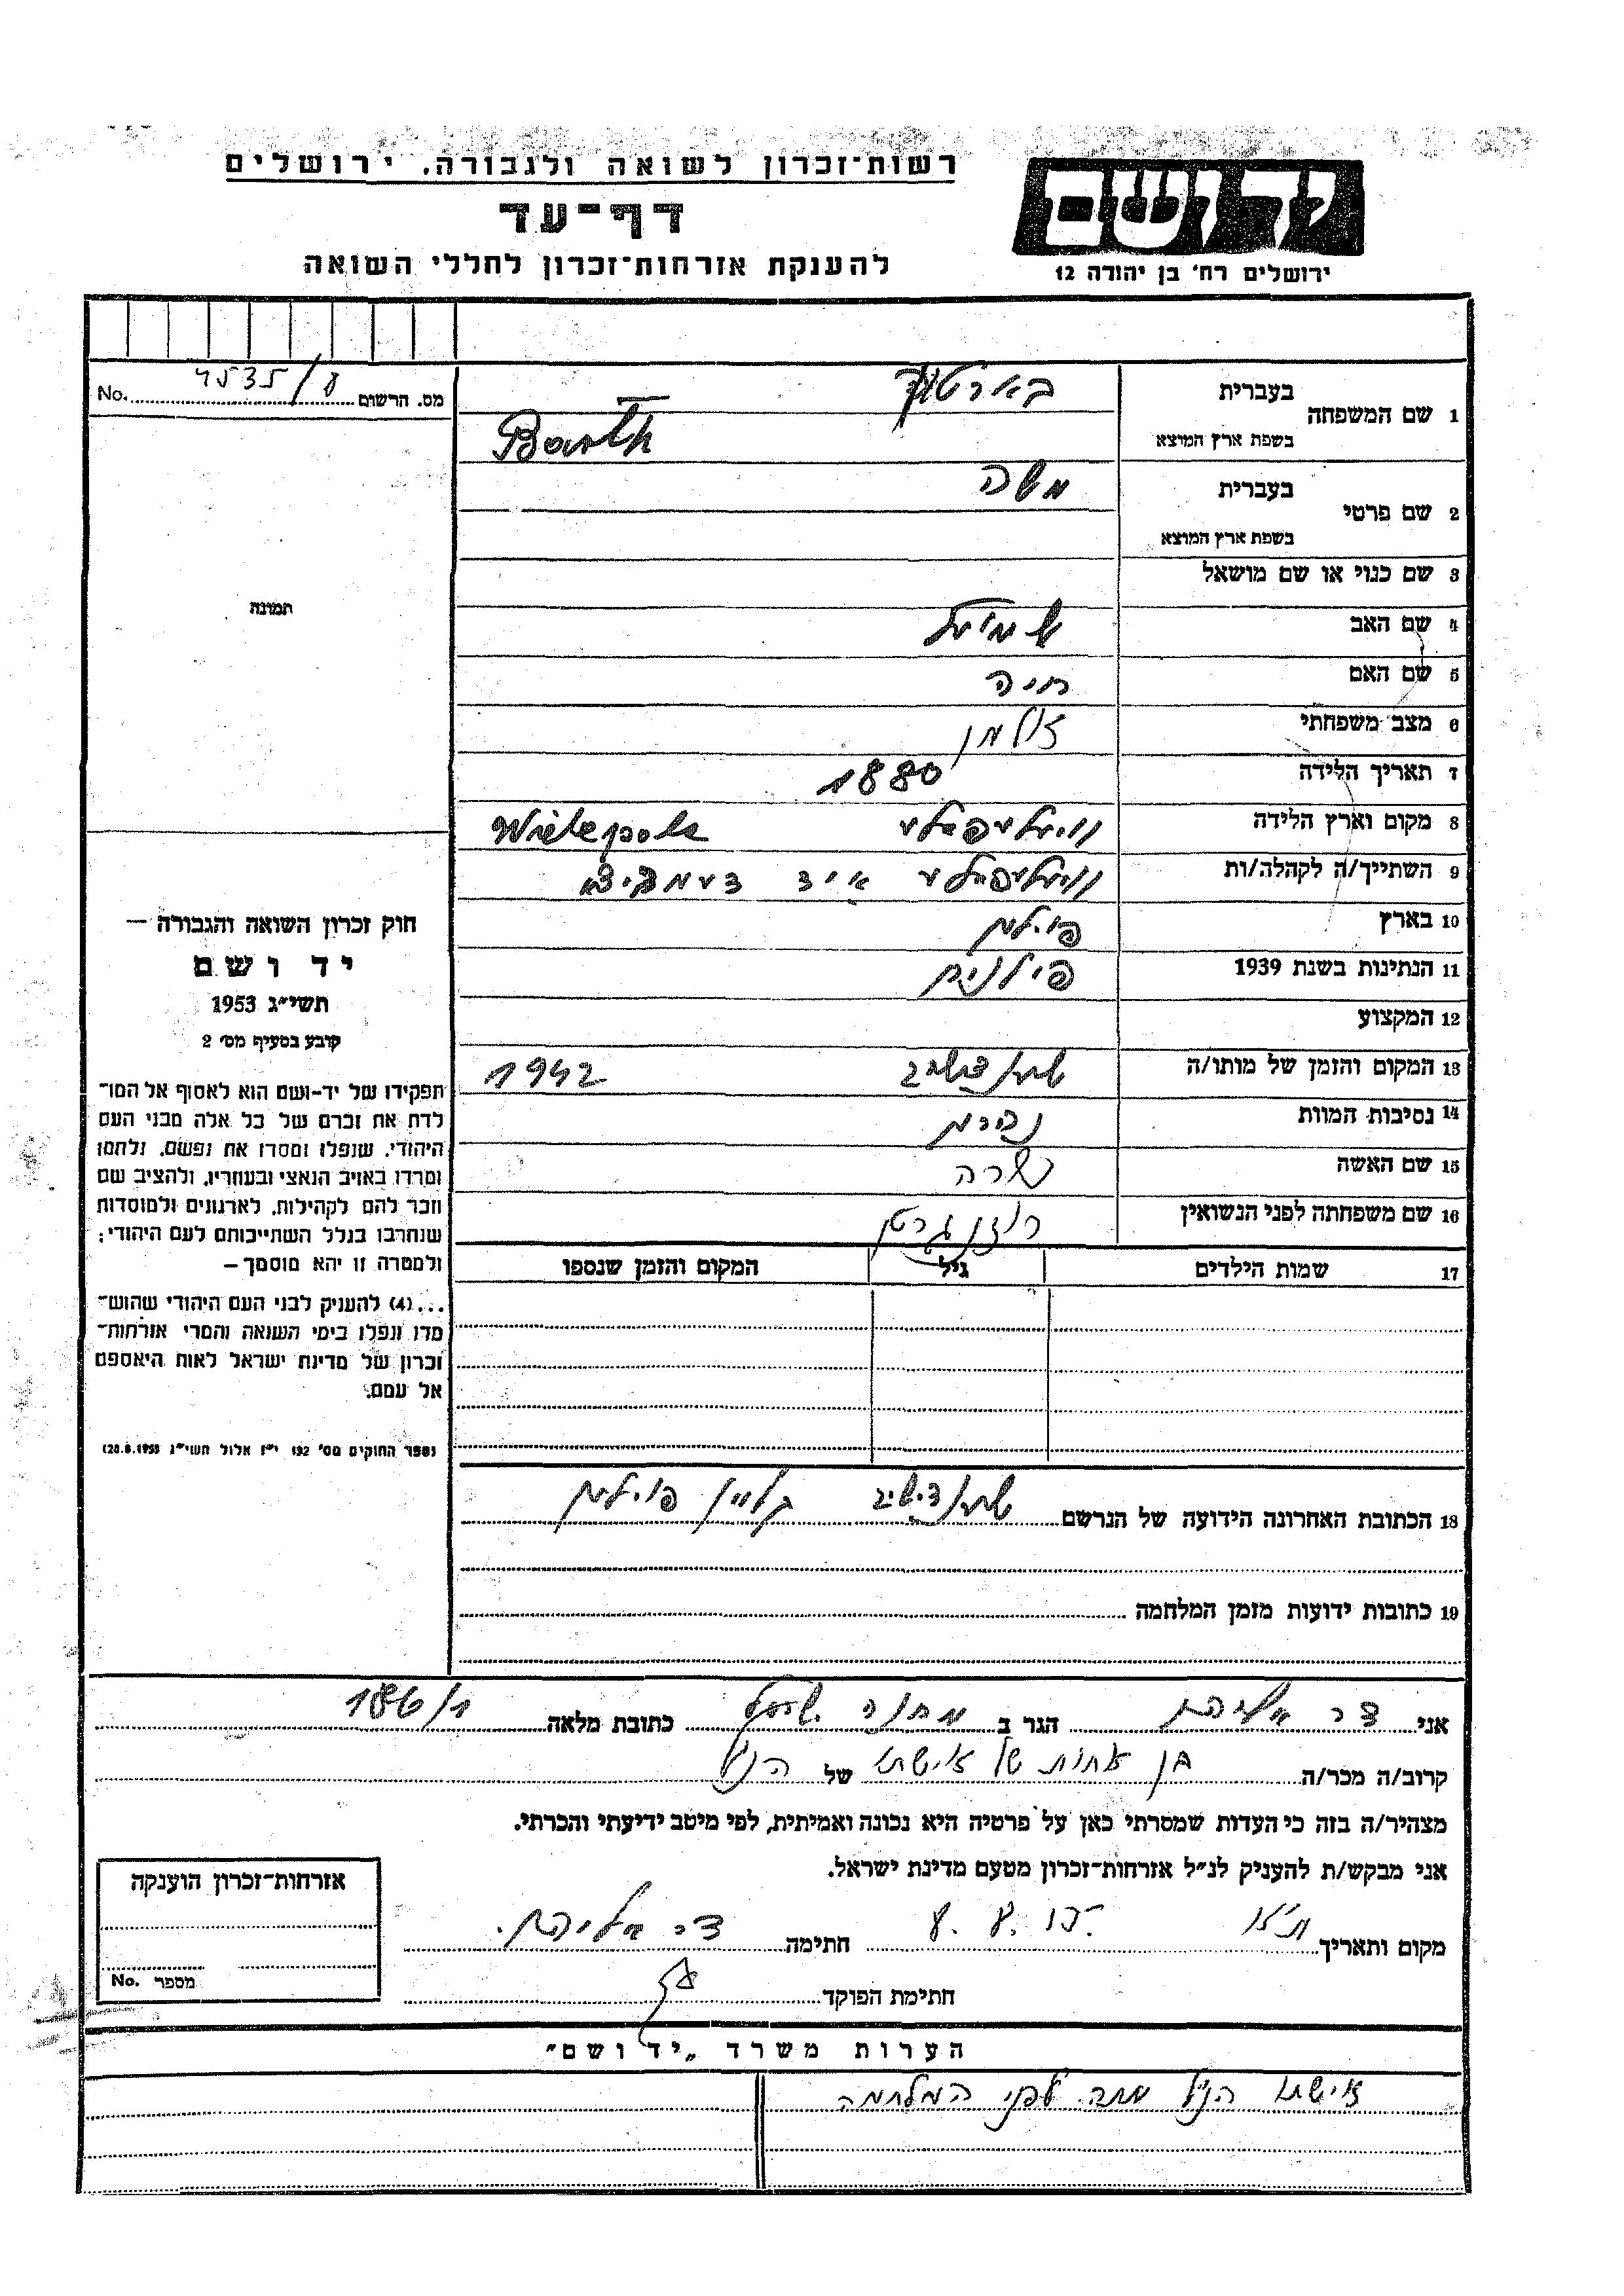 רשות-זכרון לשואה ולגבורה, ירושלים
יד ושם
דף-עד
להענקת אזרחות-זכרון לחללי השואה
ירושלים רח' בן יהודה 12
מס. הרשום No.
1 שם המשפחה
בעברית
בשפת ארץ המוצא Barth
2 שם פרטי
בעברית משה
בשפת ארץ המוצא
3 שם כנוי או שם מושאל
4 שם האב
5 שם האם חיה
6 מצב משפחתי
7 תאריך הלידה 1880
8 מקום וארץ הלידה Wielepole
9 השתייך/ה לקהלה/ות
10 בארץ פולין
11 הנתינות בשנת 1939
12 המקצוע
13 המקום והזמן של מותו/ה 1942
14 נסיבות המוות
15 שם האשה שרה
16 שם משפחתה לפני הנשואין רוזנגרטן
17 שמות הילדים גיל המקום והזמן שנספו
תמונה
חוק זכרון השואה והגבורה —
יד ושם
תשי״ג 1953
קובע בסעיף מס׳ 2
תפקידו של יד-ושם הוא לאסוף אל המו־
לדת את זכרם של כל אלה מבני העם
היהודי, שנפלו ומסרו את נפשם, נלחמו
ומרדו באויב הנאצי ובעוזריו, ולהציב שם
וזכר להם לקהילות, לארגונים ולמוסדות
שנחרבו בגלל השתייכותם לעם היהודי;
ולמטרה זו יהא מוסמך —
...(4) להעניק לבני העם היהודי שהוש־
מדו ונפלו בימי השואה והמרי אזרחות־
זכרון של מדינת ישראל לאות היאספם
אל עמם.
(ספר החוקים מס׳ 132 י״ז אלול תשי״ג 28.8.1953)
18 הכתובת האחרונה הידועה של הנרשם
19 כתובות ידועות מזמן המלחמה
אני הגר ב מחנה כתובת מלאה
קרוב/ה מכר/ה בן אחות של אישתו של הנ״ל
מצהיר/ה בזה כי העדות שמסרתי כאן על פרטיה היא נכונה ואמיתית, לפי מיטב ידיעתי והכרתי.
אני מבקש/ת להעניק לנ״ל אזרחות-זכרון מטעם מדינת ישראל.
מקום ותאריך חתימה
חתימת הפוקד
אזרחות-זכרון הוענקה
מספר No.
הערות משרד „יד ושם״
אישתו הנ״ל מתה לפני המלחמה